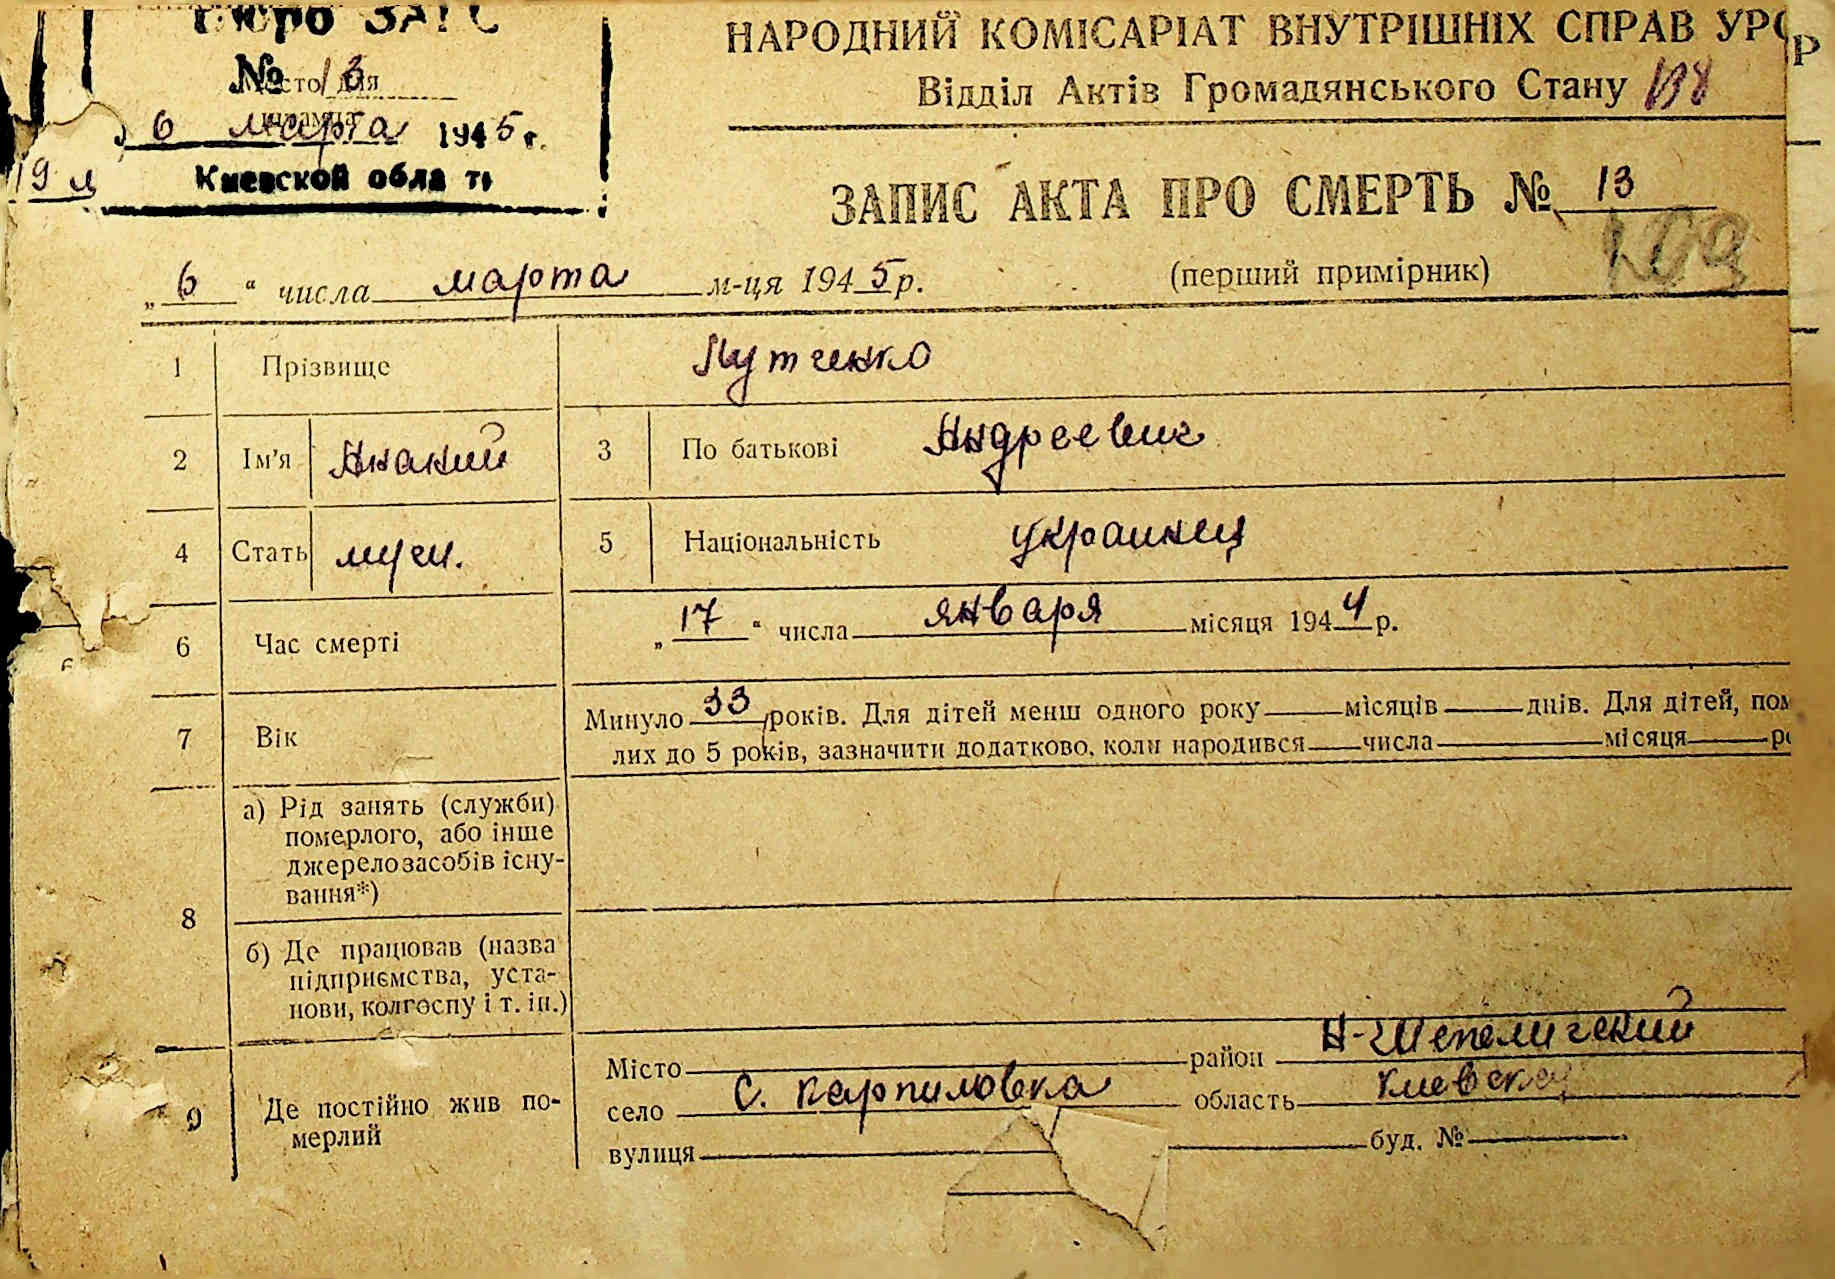 Бюро ЗАГС
НАРОДНИЙ КОМІСАРІАТ ВНУТРІШНІХ СПРАВ УРС
№ 13
Місто для
Відділ Актів Громадянського Стану
штампа
6 марта 1945 г.
Киевской обла ти
ЗАПИС АКТА ПРО СМЕРТЬ № 13
„6“ числа марта м-ця 1945 р. (перший примірник)
1 Прізвище Путченко
2 Ім'я Акакий 3 По батькові Андреевич
4 Стать муж. 5 Національність украинец
6 Час смерті „17“ числа января місяця 1944 р.
7 Вік Минуло 33 років. Для дітей менш одного року місяців днів. Для дітей, пом
лих до 5 років, зазначити додатково, коли народився числа місяця ро
8 а) Рід занять (служби)
померлого, або інше
джерело засобів існу-
вання*)
б) Де працював (назва
підприємства, уста-
нови, колгоспу і т. ін.)
9 Де постійно жив по-
мерлий
Місто район Н-Шепеличский
село с. Карпиловка область Киевская
вулиця буд. №